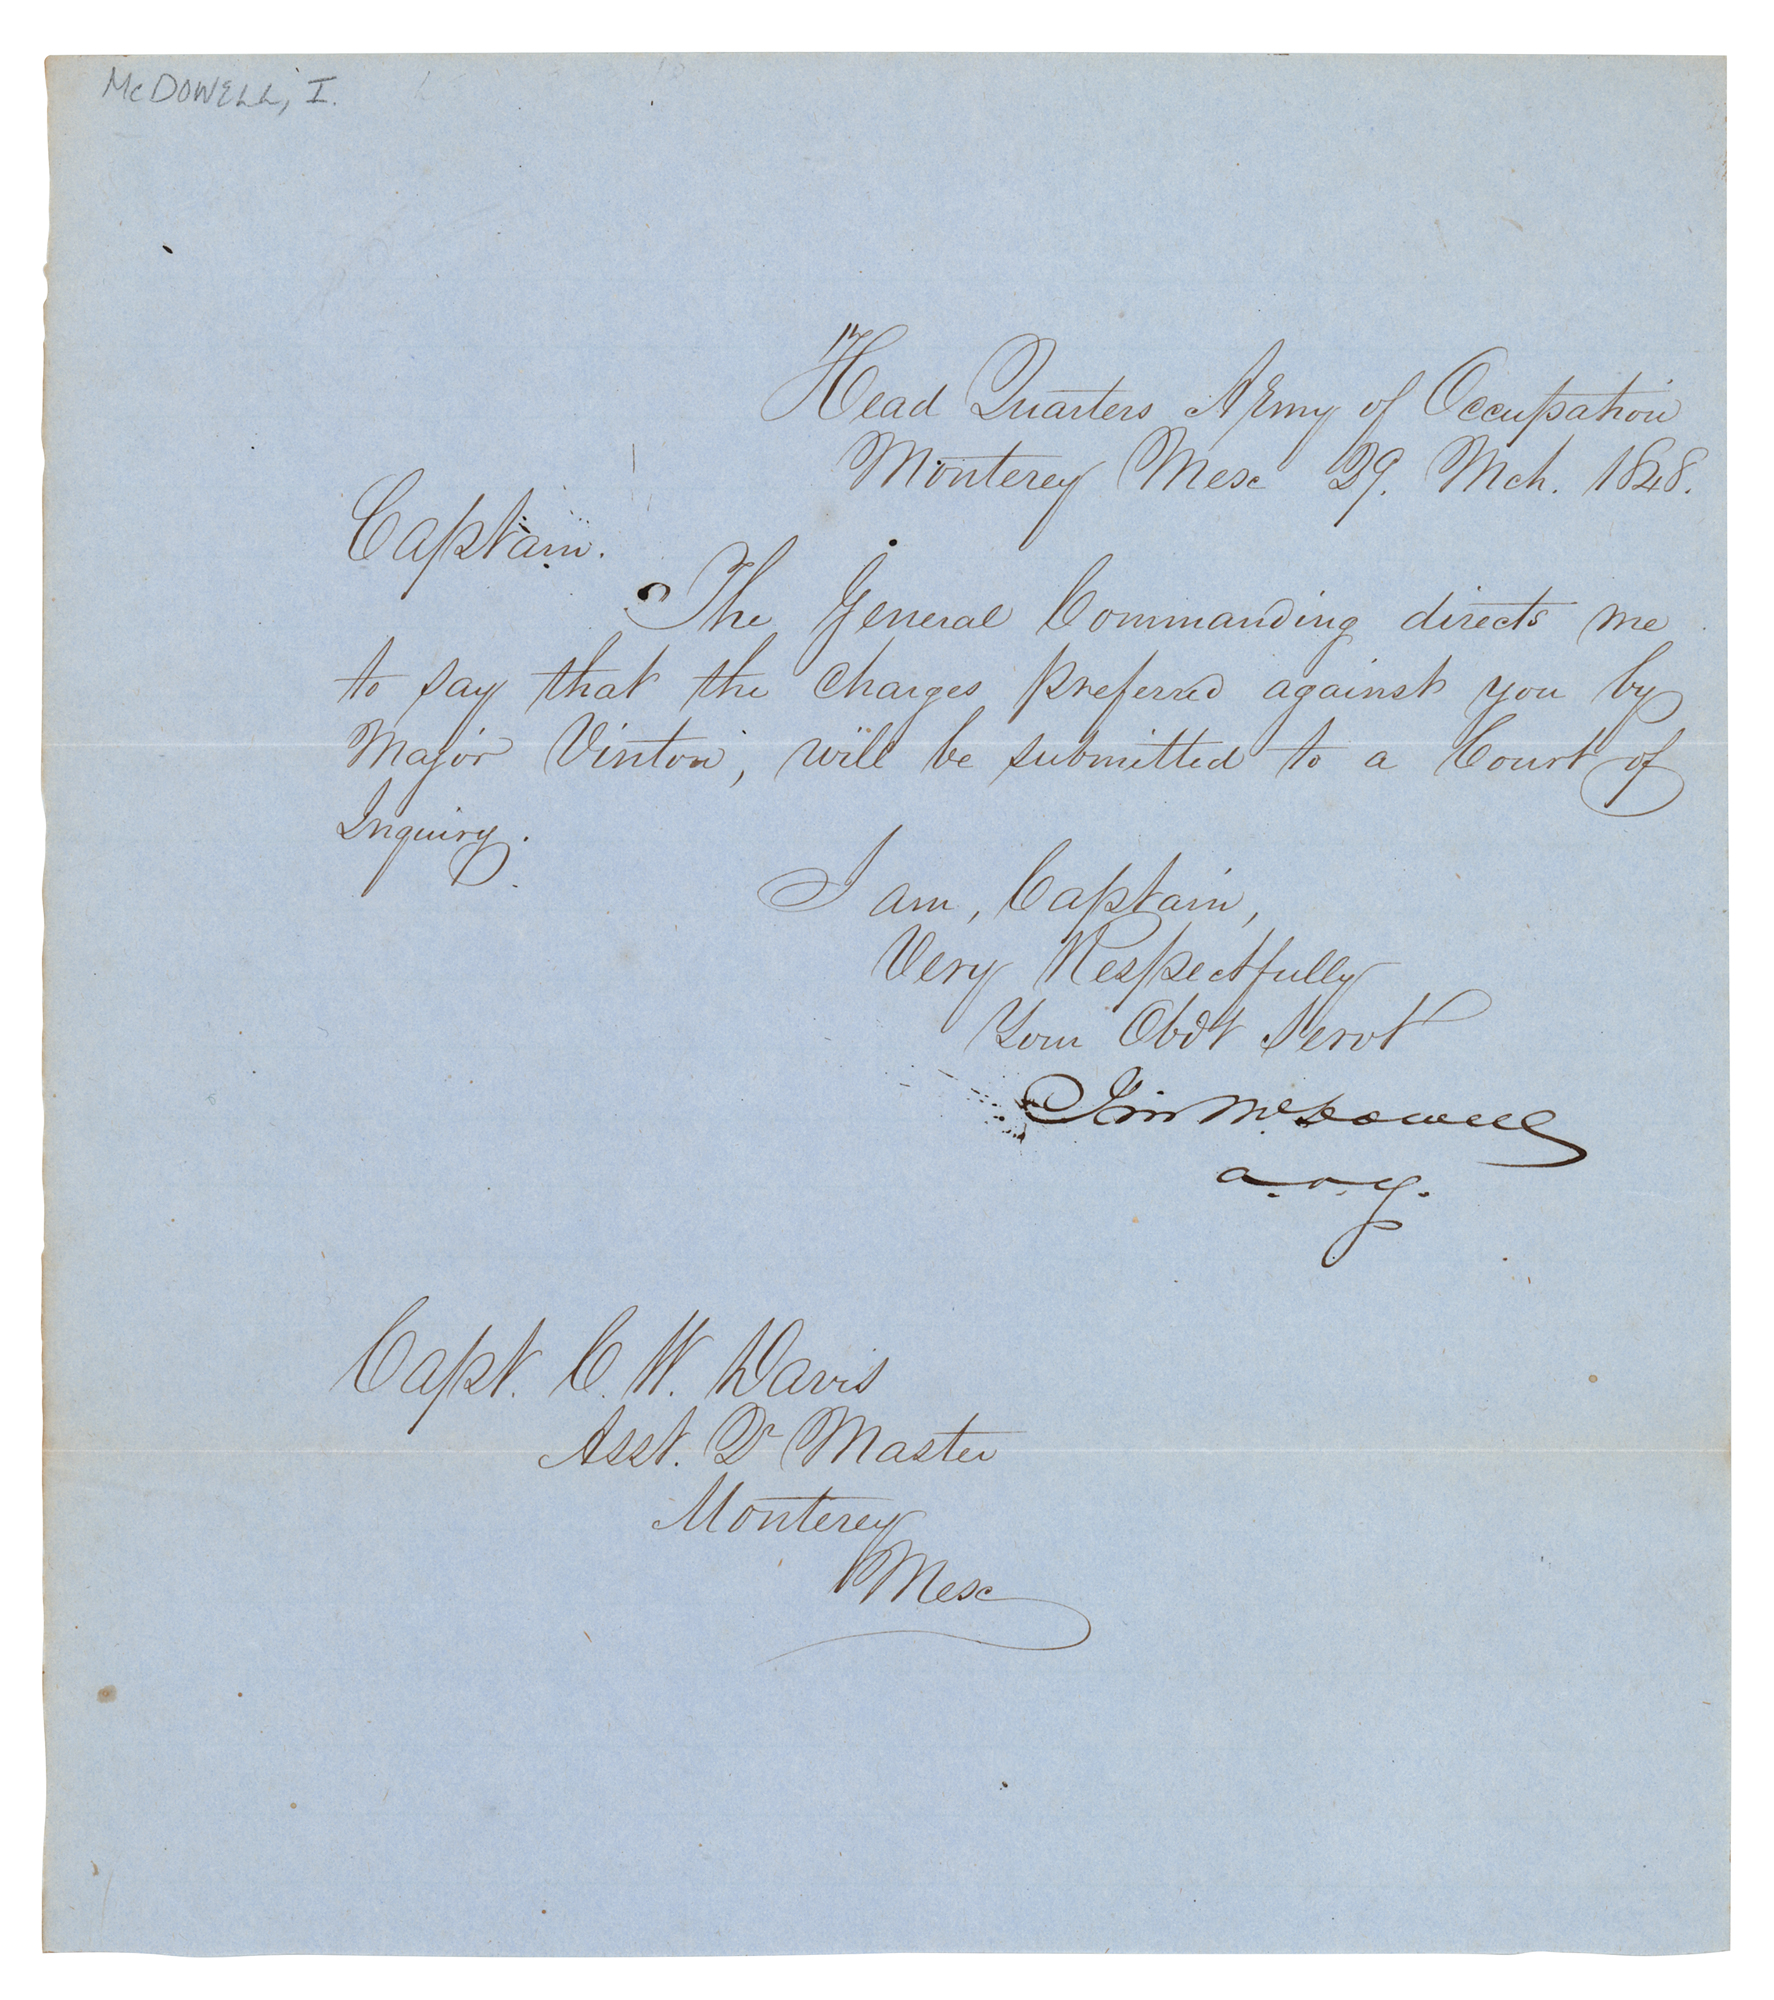 McDOWELL, I.
Head Quarters Army of Occupation
Monterey Mex 29. Mch. 1848.
Captain.
The General Commanding directs me
to say that the charges preferred against you by
Major Vinton, will be submitted to a Court of
Inquiry.
I am, Captain,
Very Respectfully
Your Obdt Servt
Irvin McDowell
a.a.g.
Capt. C. W. Davis
Asst. Qr Master
Monterey
Mex